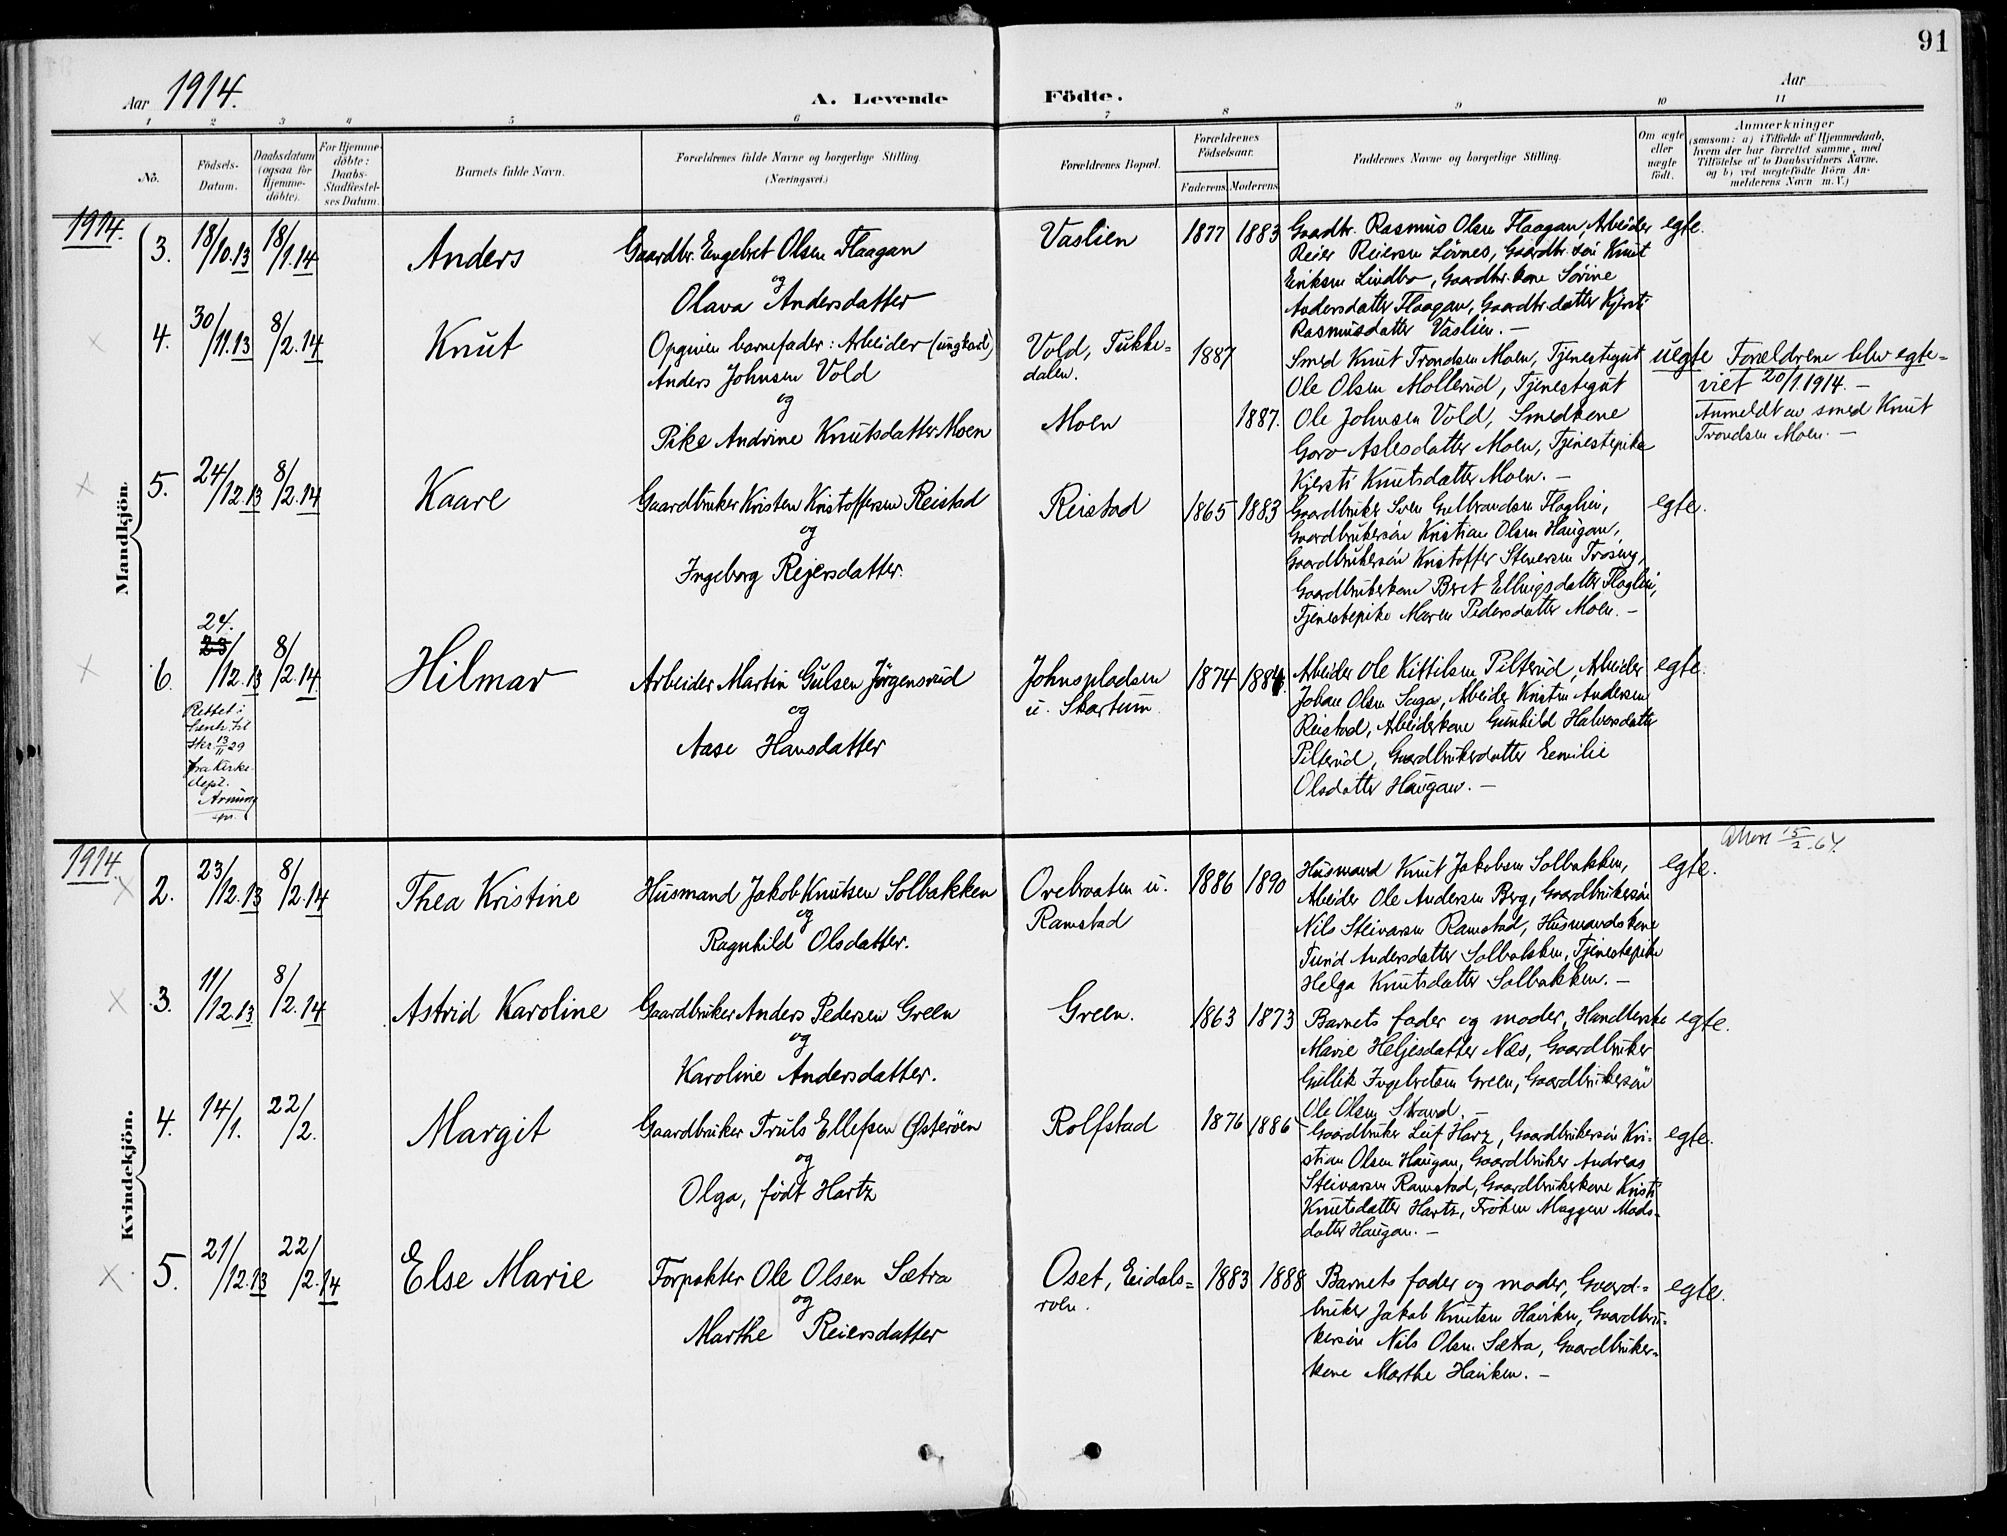 91
Aar 1914.
A. Levende
Födte.
Aar
1 2 3 4 5 6 7 8 9 10 11
No.
Födsels-
Datum.
Daabsdatum
(ogsaa for
Hjemme-
döbte).
For Hjemme-
döbte:
Daabs-
Stadfæstel-
ses Datum.
Barnets fulde Navn.
Forældrenes fulde Navne og borgerlige Stilling.
(Næringsvei.)
Forældrenes Bopæl.
Forældrenes
Födselsaar.
Faderens. Moderens.
Faddernes Navne og borgerlige Stilling.
Om ægte
eller
uægte
födt.
Anmærkninger
(saasom: a) i Tilfælde af Hjemmedaab,
hvem der har forrettet samme, med
Tilföielse af to Daabsvidners Navne,
og b) ved uægtefödte Börn An-
melderens Navn m. V.)
Mandkjön.
1914.
3.
18/10.13
18/1.14
Anders
Gaardbr. Engebret Olsen Flaagan
og
Olava Andersdatter
Vaslien
1877
1883
Gaardbr. Rasmus Olsen Flaagan, Arbeider
Reier Reiersen Lövnes, Gaardbr. sön Knut
Eriksen Lindbo, Gaardbr. kone Sörine
Andersdatter Flaagan, Gaardbr. datter Kjersti
Rasmusdatter Vaslien. –
egte.
4.
30/11.13
8/2.14
Knut
Opgiven barnefader: Arbeider (ungkarl)
Anders Johnsen Vold
og
Pike Andrine Knutsdatter Moen
Vold, Tukke-
dalen.
Moen
1887
1887.
Smed Knut Trondsen Moen, Tjenestegut
Ole Olsen Mollerud, Tjenestegut
Ole Johnsen Vold, Smedkone
Goro Aslesdatter Moen, Tjenestepike
Kjersti Knutsdatter Moen. –
uegte
Forældrene blev egte-
viet 20/1 1914. –
Anmeldt av smed Knut
Trondsen Moen. –
5.
24/12.13
8/2.14
Kaare
Gaardbruker Kristen Kristoffersen Reistad
og
Ingeborg Rejersdatter.
Reistad
1865
1883
Gaardbruker Sven Gulbrandsen Flaglien,
Gaardbrukersön Kristian Olsen Haugan,
Gaardbrukersön Kristoffer Stenersen
Gaardbrukerkone Beret Ellingsdatter Flaglien,
Tjenestepike Maren Pedersdatter Moen. –
egte.
6.
24.
23/12.13
8/2.14
Rettet i
henh. til
skr. 13/11 29
fra Kirke-
dept.
Hilmar
Arbeider Martin Gulsen Jörgensrud
og
Aase Hansdatter
Johnspladsen
u. Skartum
1874
1884.
Arbeider Ole Kittilsen Pilterud, Arbeider
Johan Olsen Saga, Arbeider Kristen Andersen
Reistad, Arbeiderkone Gunhild Halvorsdatter
Pilterud, Gaardbrukerdatter Eemilie
Olsdatter Haugan. –
egte.
Kvindekjön.
1914.
2.
23/12.13
8/2.14
Thea Kristine
Husmand Jakob Knutsen Solbakken
og
Ragnhild Olsdatter.
Ovebraaten u.
Ramstad
1886
1890
Husmand Knut Jakobsen Solbakken,
Arbeider Ole Andersen Berg, Gaardbrukersön
Nils Steinarsen Ramstad, Husmandskone
Turid Andersdatter Solbakken, Tjenestepike
Helga Knutsdatter Solbakken. –
egte.
Attest 15/2 – 64.
3.
11/12.13
8/2.14
Astrid Karoline
Gaardbruker Anders Pedersen Green
og
Karoline Andersdatter.
Green.
1863
1873
Barnets fader og moder, Handlerske
Marie Heljesdatter Næs, Gaardbruker
Gullik Ingebretsen Green, Gaardbrukersön
Ole Olsen Strand. –
egte.
4.
14/1.
22/2.
Margit
Gaardbruker Truls Ellefsen Österöen
og
Olga, født Hartz
Rolfstad
1876
1886
Gaardbruker Leif Harz, Gaardbrukersön Kri-
stian Olsen Haugan, Gaardbruker Andreas
Steinarsen Ramstad, Gaardbrukerkone Kristi
Knutsdatter Hartz, Fröken Maggen Mads-
datter Haugan. –
egte.
5.
21/12.13
22/2.14
Else Marie
Forpakter Ole Olsen Sætra
og
Marthe Reiersdatter
Oset, Eidals-
roen.
1883
1888
Barnets fader og moder, Gaard-
bruker Jakob Knutsen Haviken, Gaardbru-
kersön Nils Olsen Sætra, Gaardbruker-
kone Marthe Haviken. –
egte.